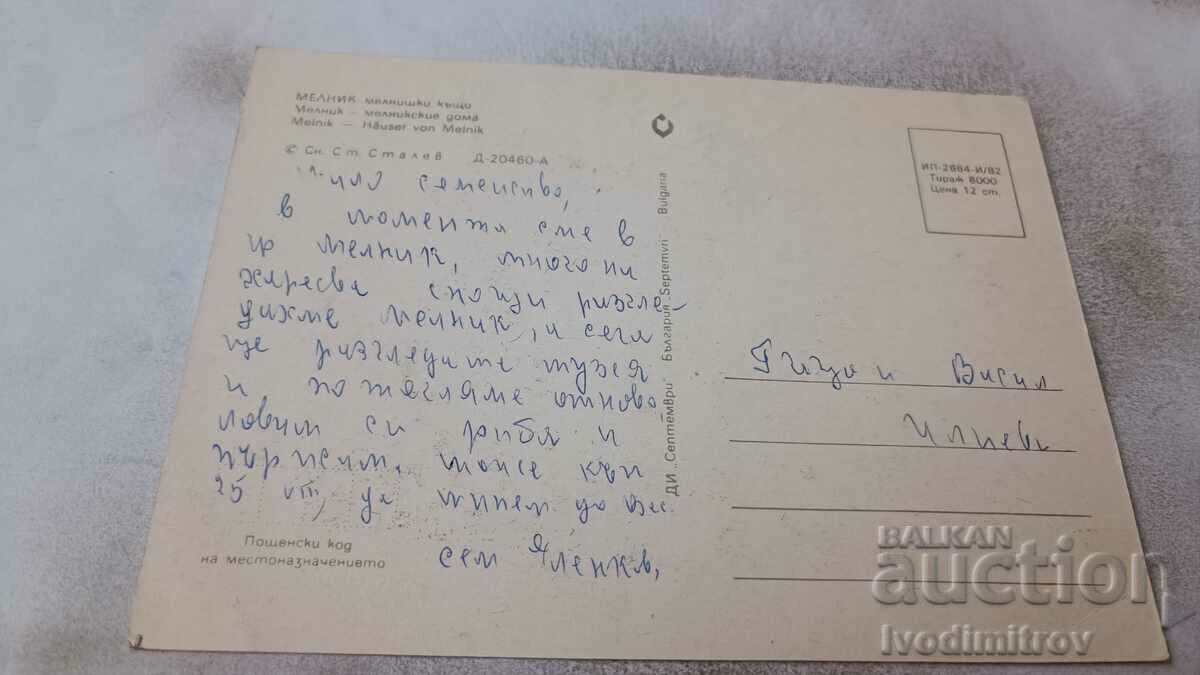 МЕЛНИК мелнишки къщи
Мелник – мелникские дома
Melnik — Häuser von Melnik
© Сн. Ст. Сталев Д-20460-А
Мило семейство,
в момента сме в
гр Мелник, много ни
харесва снощи разгле-
дахме Мелник, и сега
ще разгледаме музея
и потегляме отново
ловим си риба и
пържим. може към
25 VIII, да минем до Вас.
сем
Пощенски код
на местоназначението
ДИ „Септември" България „Septemvri" Bulgaria
ИП-2664-И/82
Тираж 8000
Цена 12 ст.
и Васил
Илиеви
BALKAN
auction
Ivodimitrov